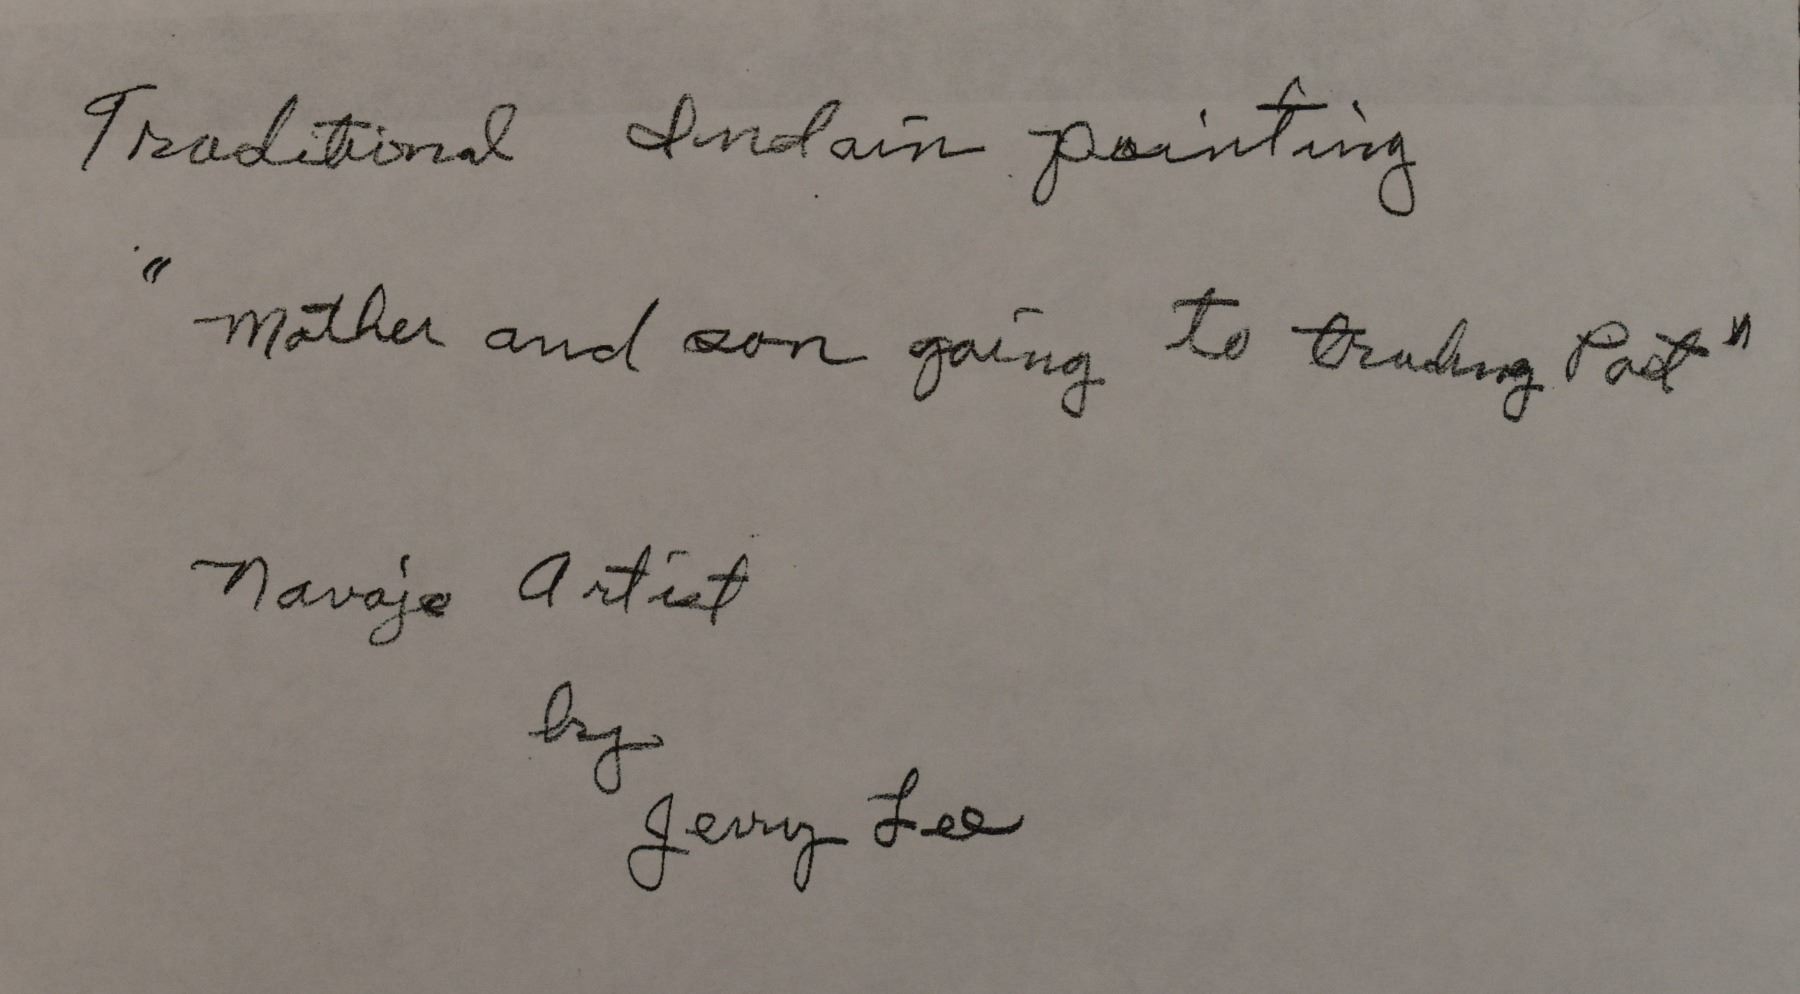 Traditional Indain painting
"Mother and son going to trading Post"
Navajo Artist
by
Jerry Lee